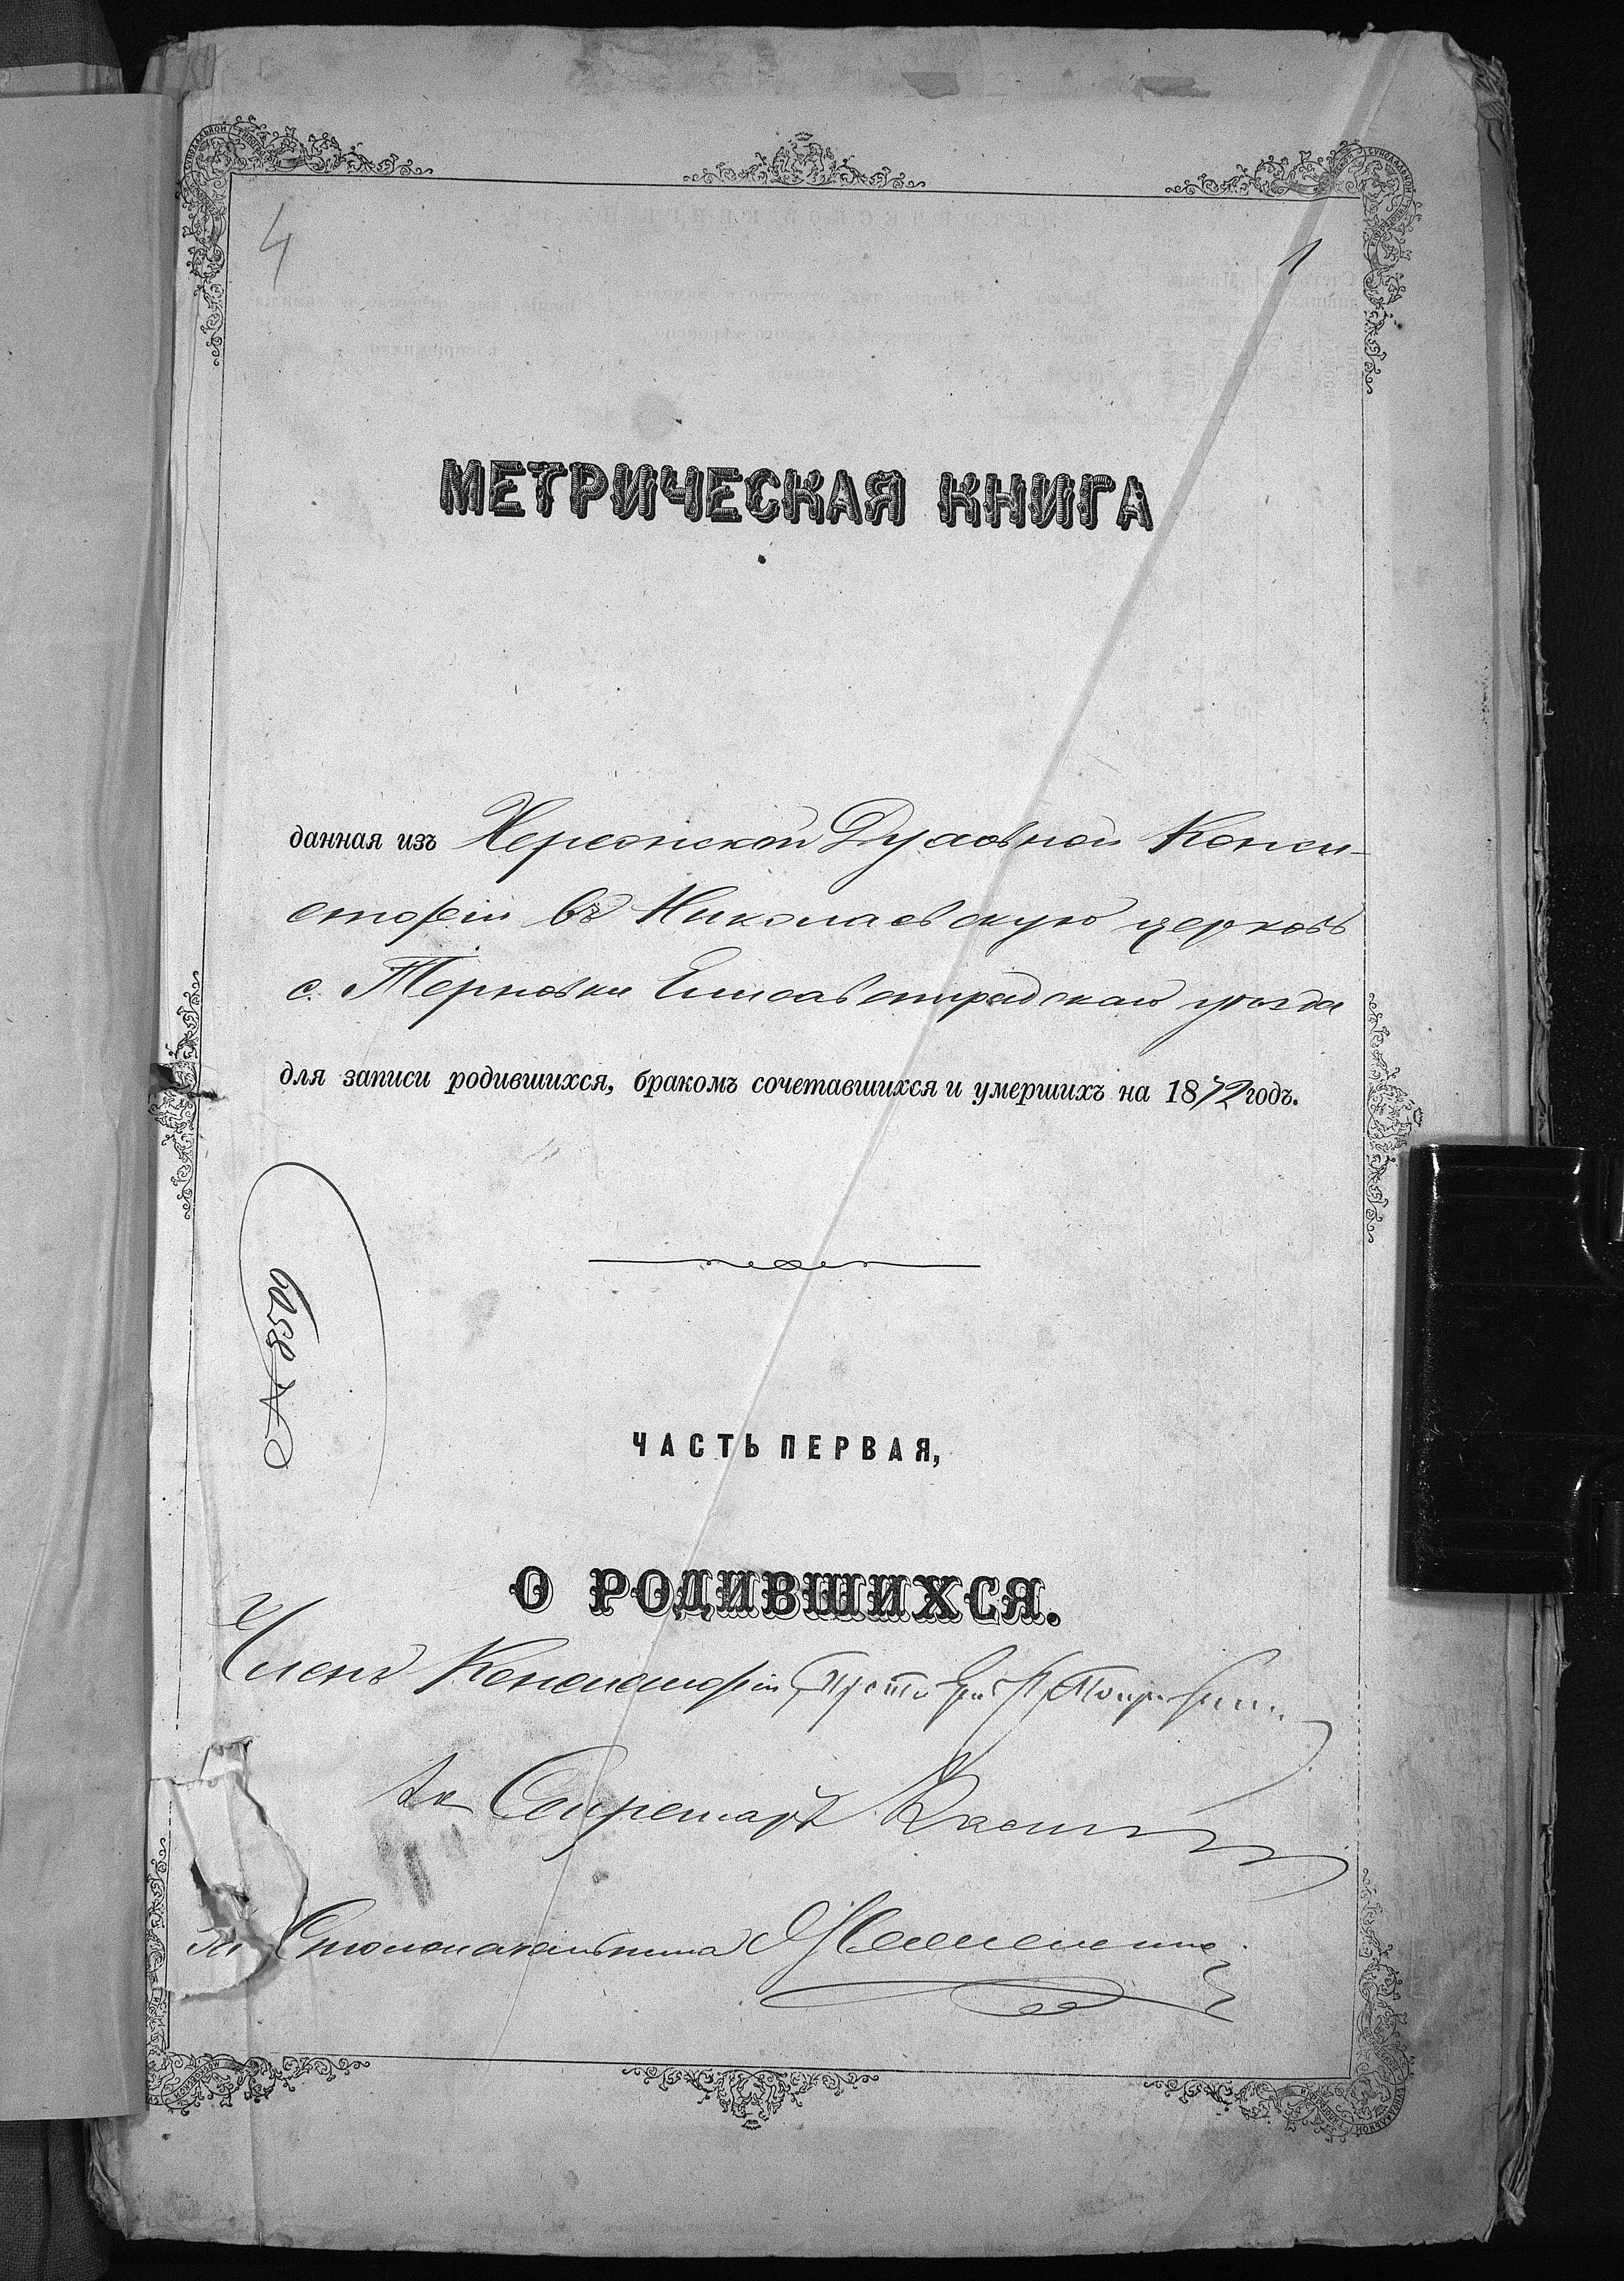 4
1
МЕТРИЧЕСКАЯ КНИГА
данная изъ Херсонской Духовной Конси-
сторіи въ Николаевскую церковь
с. Терновки Елисаветградскаго уѣзда
для записи родившихся, бракомъ сочетавшихся и умершихъ на 1872 годъ.
№ 8509
ЧАСТЬ ПЕРВАЯ,
О РОДИВШИХСЯ.
Членъ Консисторіи Протоіерей
Секретарь
За Столоначальника